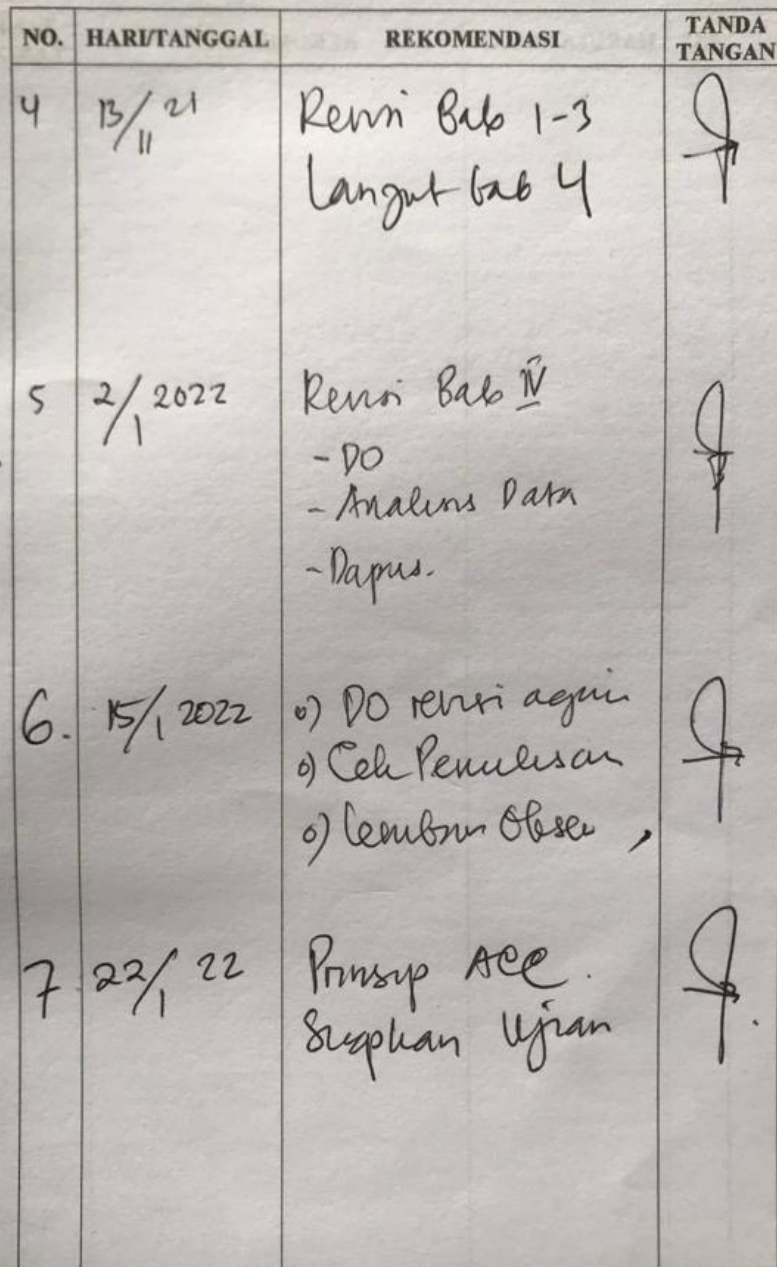 NO. HARI/TANGGAL REKOMENDASI TANDA TANGAN
4 13/11 21 Revisi Bab 1-3
Lanjut bab 4
5 2/1 2022 Revisi Bab IV
- DO
- Analisis Data
- Dapus.
6. 15/1 2022 o) DO revisi again
o) Cek Penulisan
o) Lembar Obser
7 22/1 22 Prinsip ACC.
Siapkan Ujian